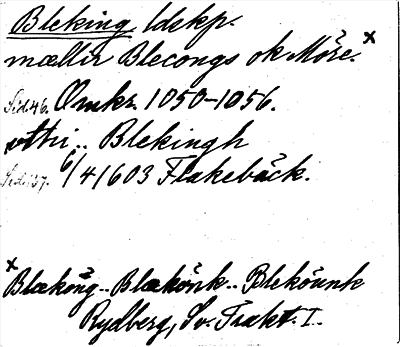 Bleking ldskp.
mællin Blecongs ok Möre.x
Sid. 46. Omkr. 1050-1056.
uthi.. Blekingh
Sid. 137. 6/4 1603 Flakebäck.
x Blækong.. Blækönk.. Bleköunk
Rydberg, Sv. Trakt. I..